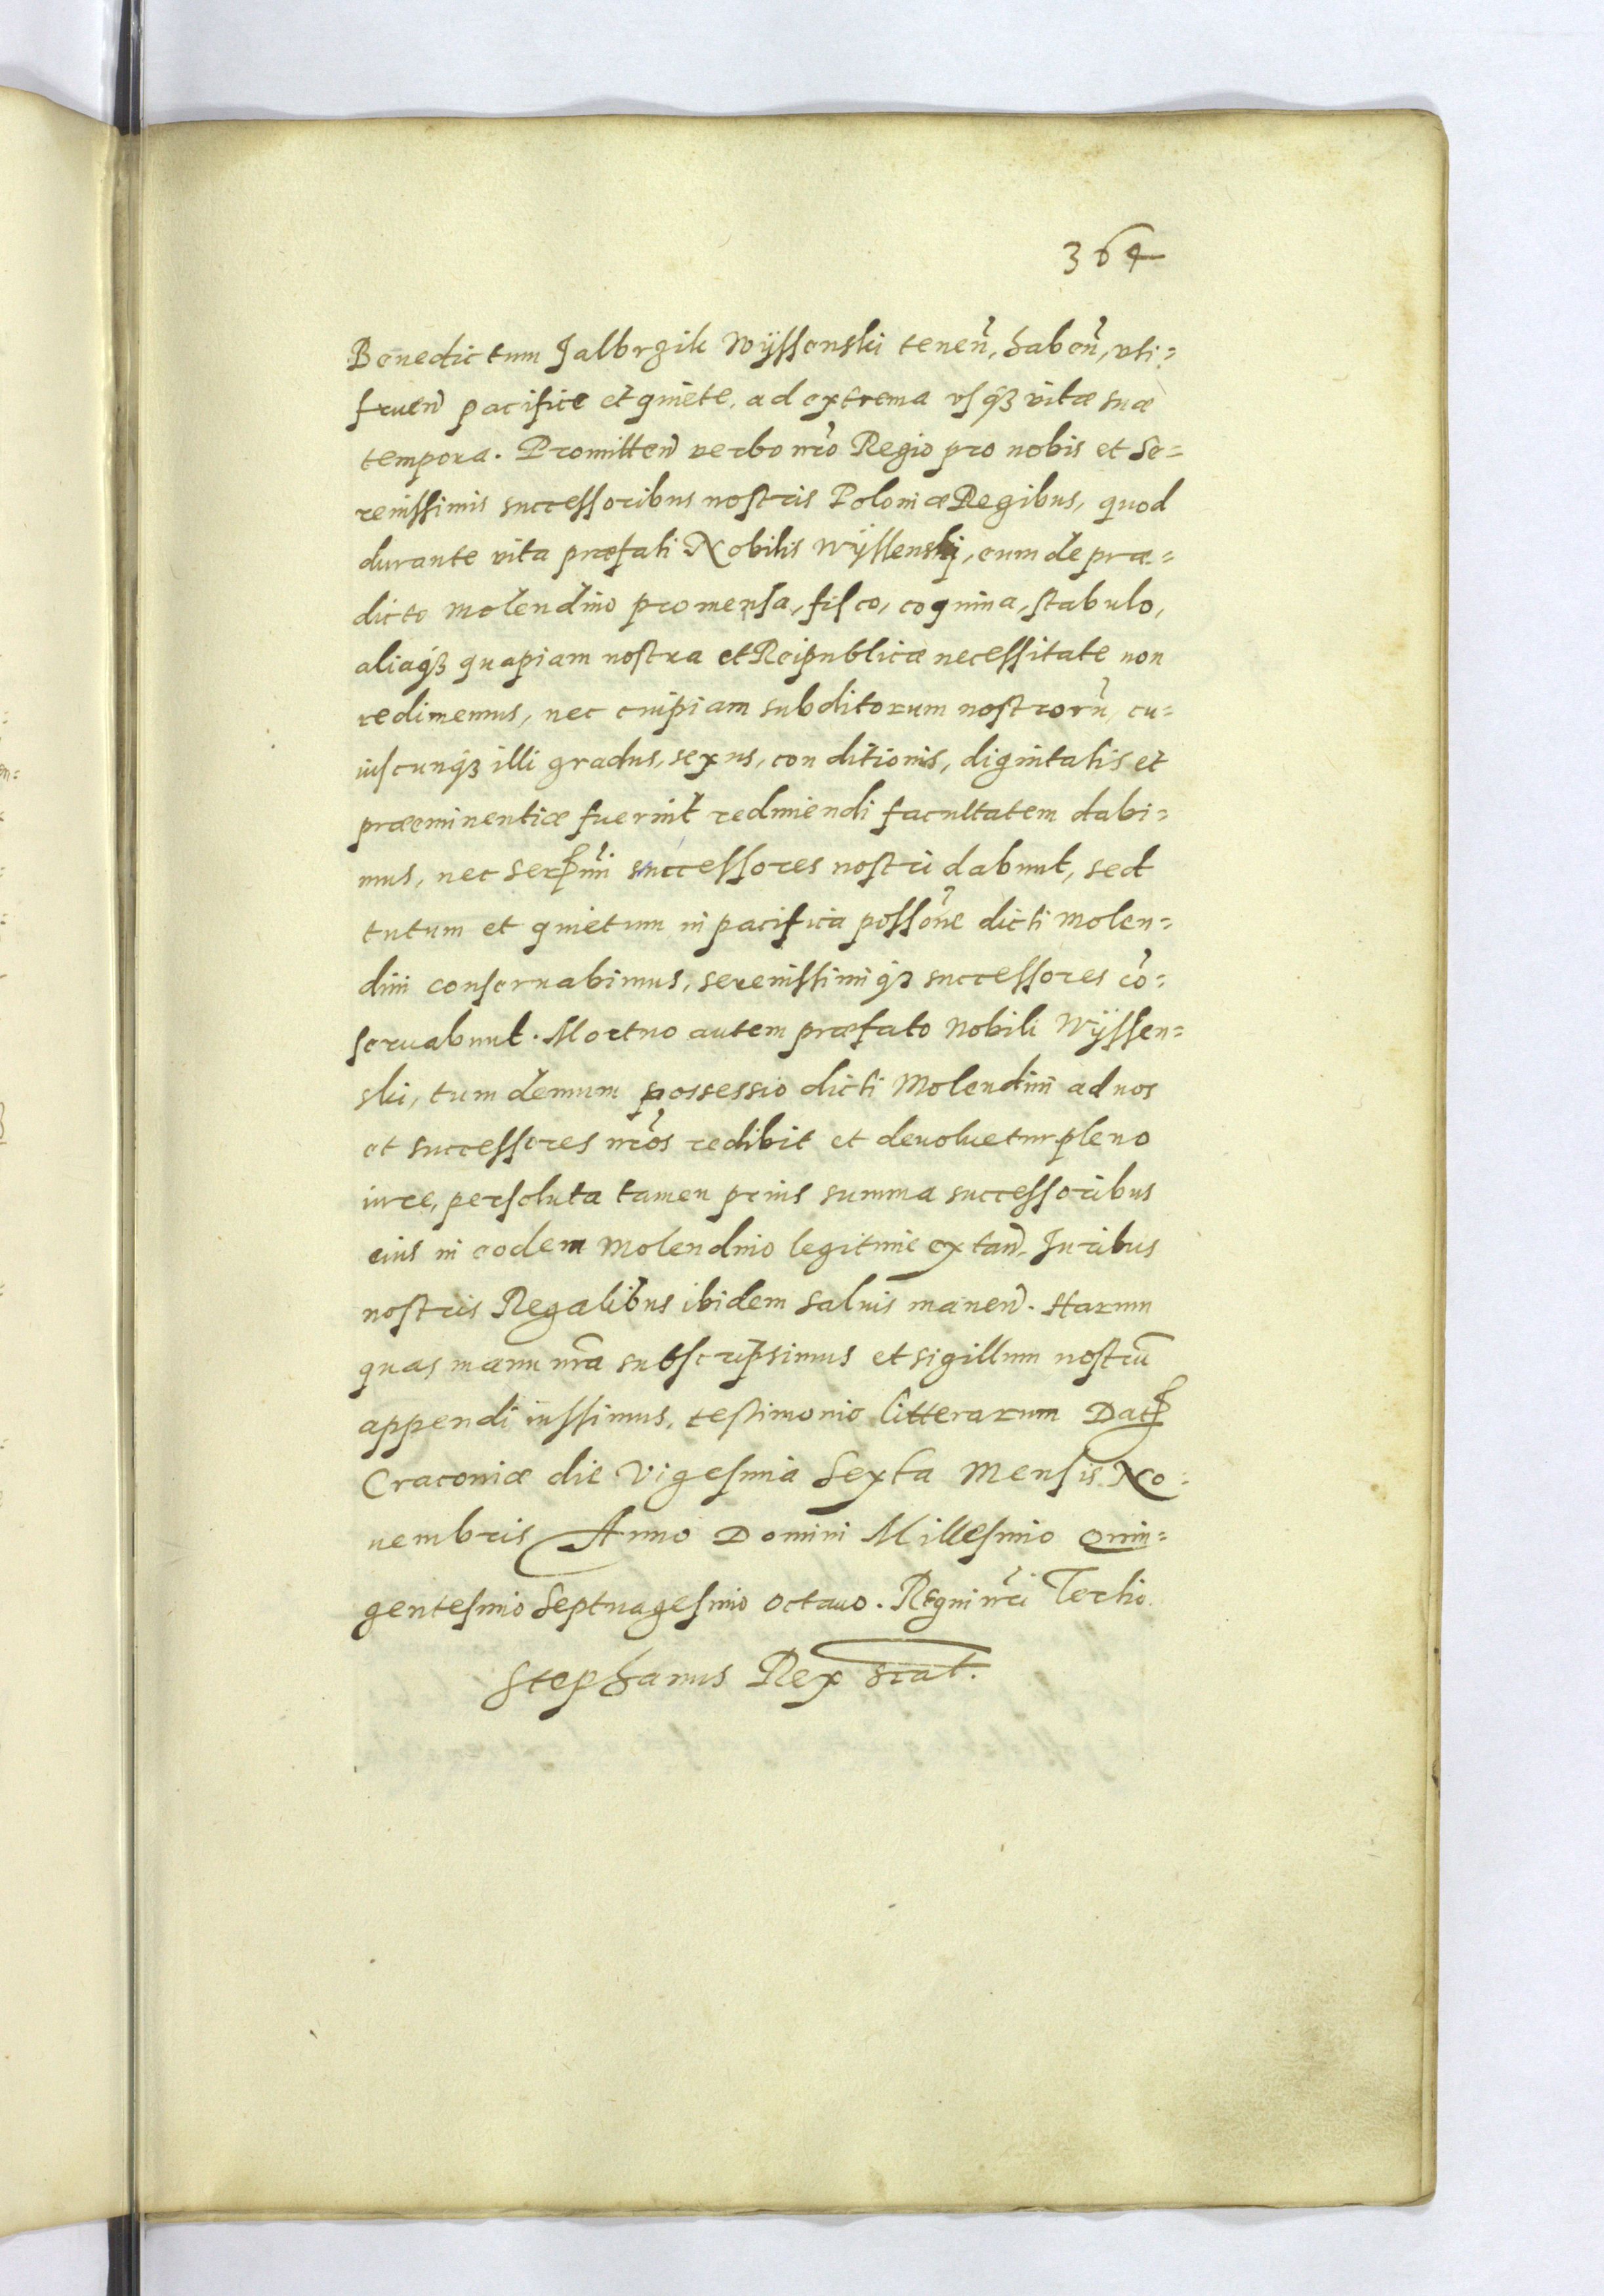 364
Benedictum Jalbrzik Wÿssenski tenen̄, haben̄, vti=
fruen̄ pacifice et quiete, ad extrema vsq3 vitæ suæ
tempora. Promitten̄ verbo nr̄o Regio pro nobis et Se=
renissimis successoribus nostris Poloniæ Regibus, quod
durante vita præfati Nobilis Wÿssenski, eum de præ=
dicto Molendino pro mensa, fisco, coquina, stabulo,
aliaq3 quapiam nostra et Reipublicæ necessitate non
redimemus, nec cuipiam subditorum nostrorū, cu=
iuscunq3 illi gradus, sexus, conditionis, dignitatis et
præeminentiæ fuerint redimendi facultatem dabi=
mus, nec Ser̄mi successores nostri dabunt, sed
tutum et quietum in pacifica possōne dicti Molen=
dini conseruabimus, serenissimiq3 successores cō=
seruabunt. Mortuo autem præfato Nobili Wÿssen=
ski, tum demum possessio dicti Molendini ad nos
et successores nr̄os redibit et deuoluetur pleno
iure, persoluta tamen prius summa successoribus
eius in eodem Molendino legitime extan̄. Juribus
nostris Regalibus ibidem saluis manen̄. Harum
quas manu nr̄a subscripsimus et sigillum nostrū
appendi iussimus, testimonio litterarum Dat
Cracoviæ die Vigesima Sexta Mensis No=
uembris Anno Domini Millesimo Quin=
gentesimo Septuagesimo octauo. Regni nr̄i Tertio.
Stephanus Rex s̄cat.